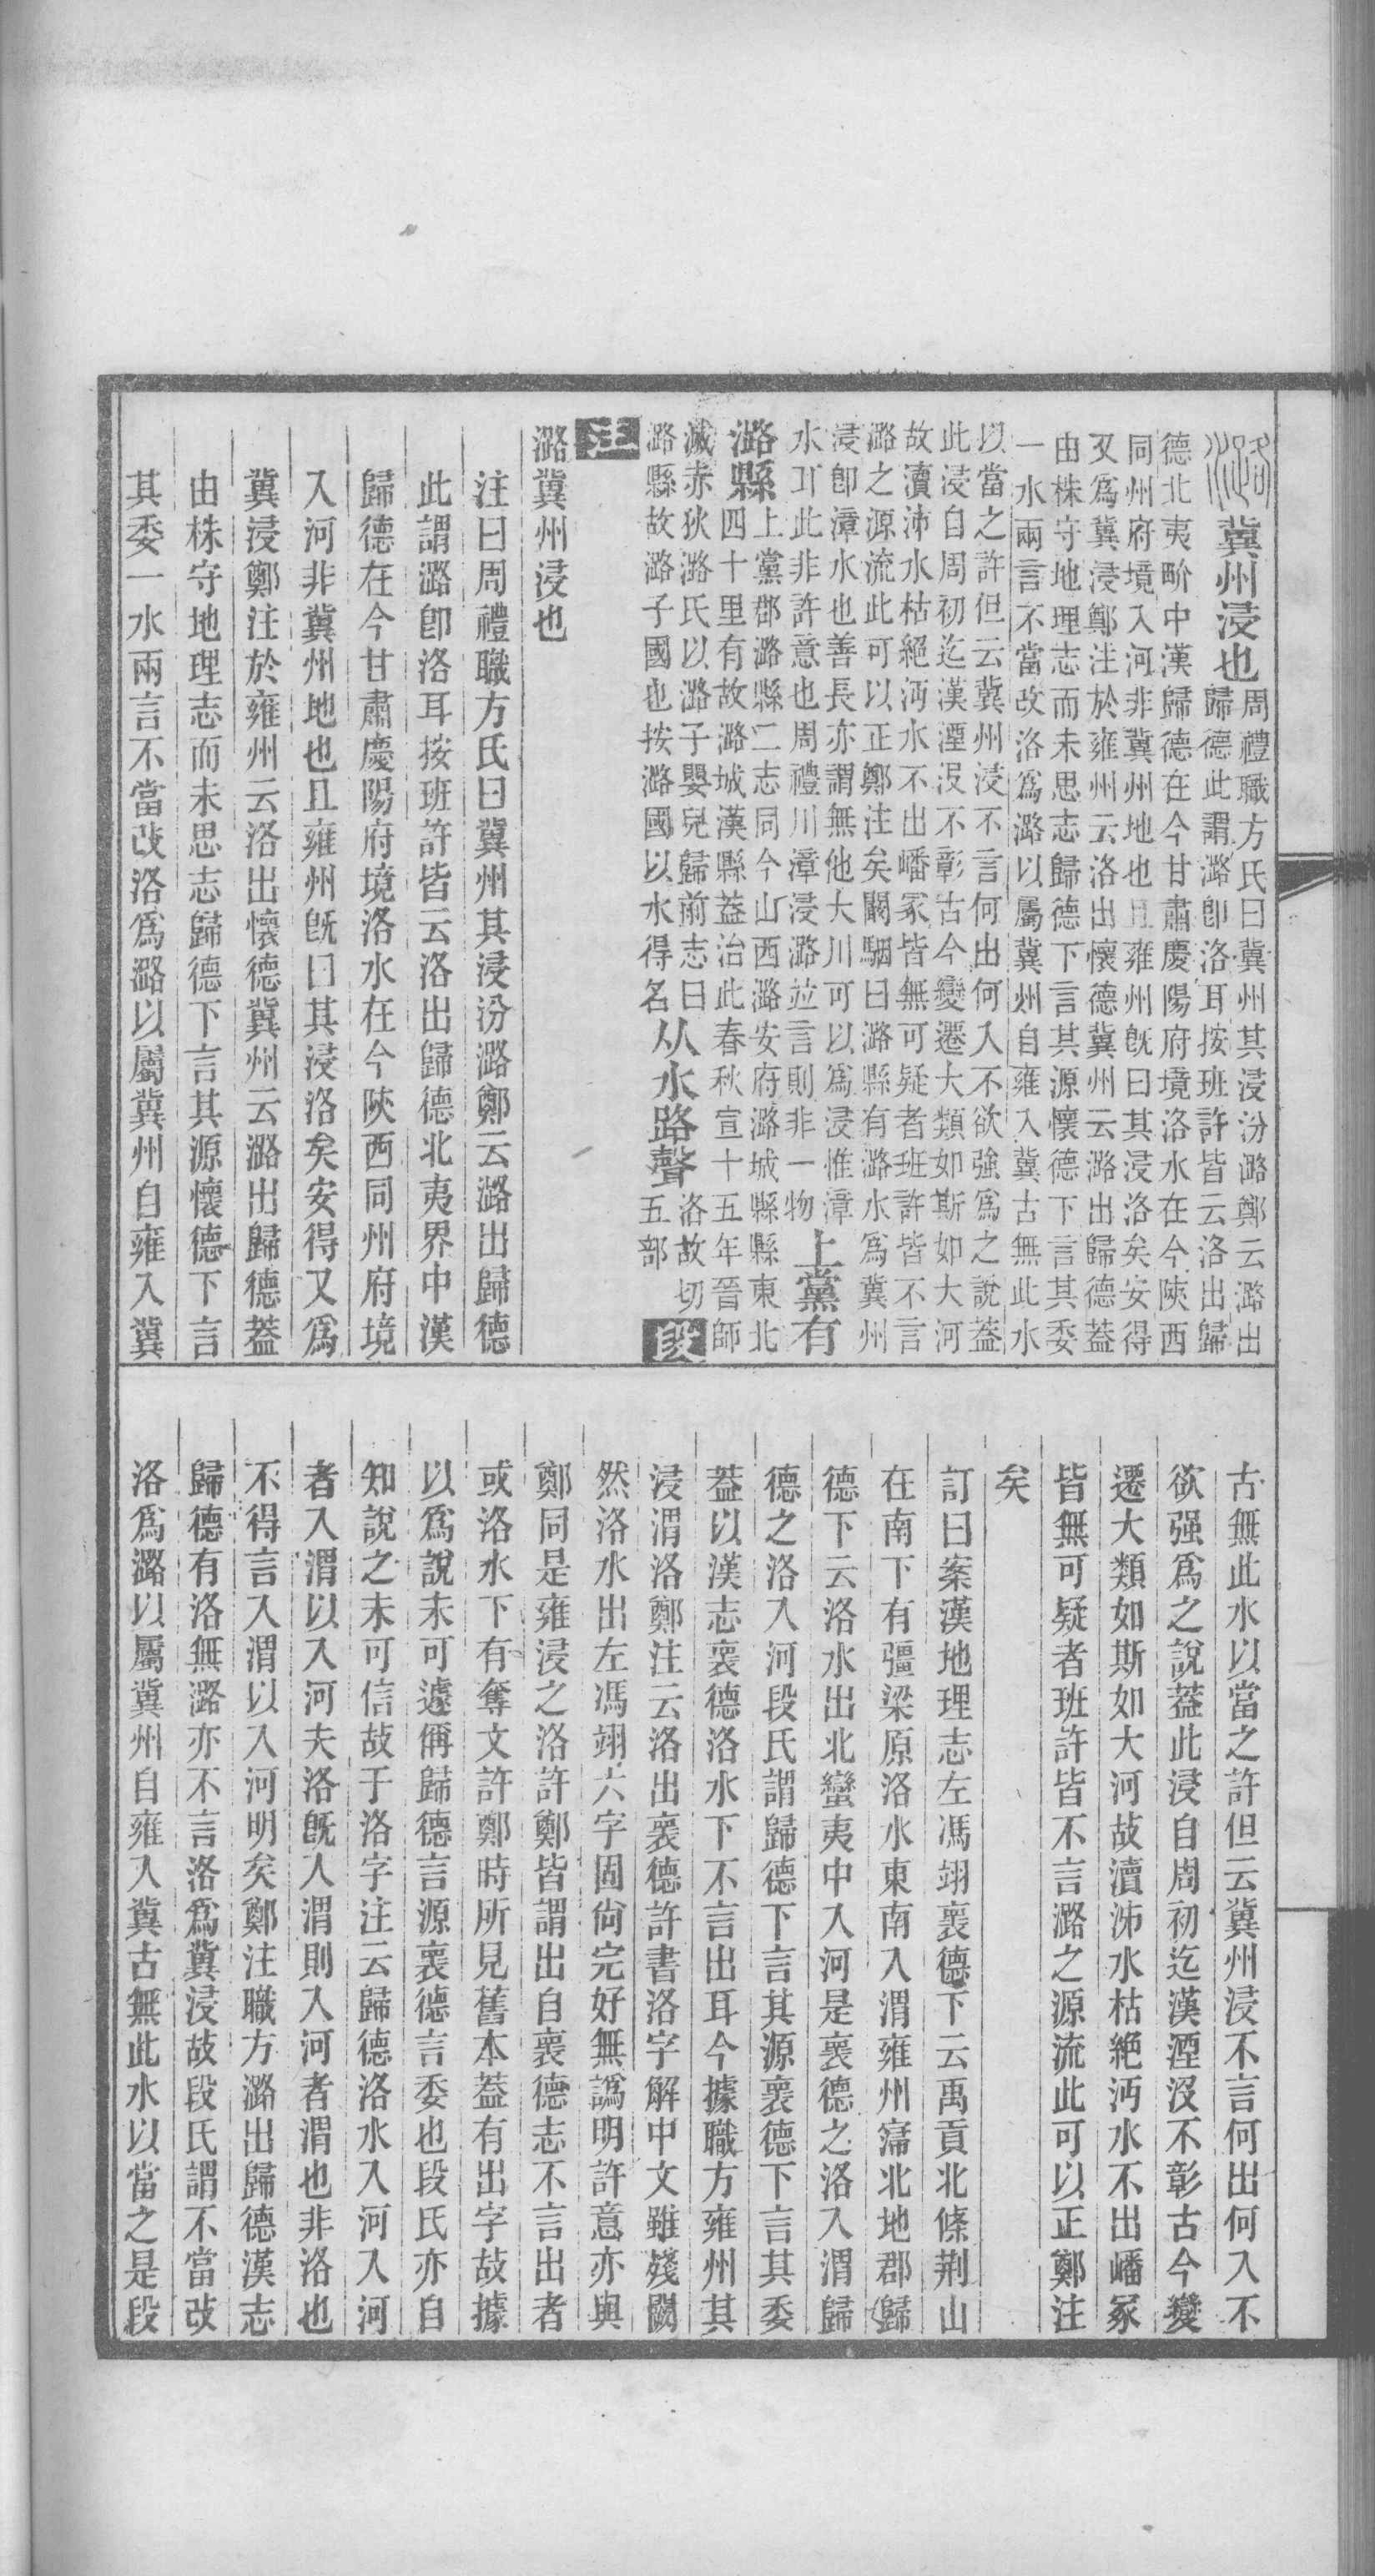 潞冀州浸也周禮職方氏曰冀州其浸汾潞鄭云潞出
歸德此謂潞卽洛耳按班許皆云洛出歸
德北夷畍中漢歸德在今甘肅慶陽府境洛水在今陝西
同州府境入河非冀州地也且雍州旣曰其浸洛矣安得
又爲冀浸鄭注於雍州云洛出懷德冀州云潞出歸德葢
由株守地理志而未思志歸德下言其源懷德下言其委
一水兩言不當改洛爲潞以屬冀州自雍入冀古無此水
以當之許但云冀州浸不言何出何入不欲強爲之說葢
此浸自周初迄漢湮沒不彰古今變遷大類如斯如大河
故瀆沛水枯絕沔水不出嶓冢皆無可疑者班許皆不言
潞之源流此可以正鄭注矣闞駰曰潞縣有潞水爲冀州
浸卽漳水也善長亦謂無他大川可以爲浸惟漳
水耳此非許意也周禮川漳浸潞竝言則非一物上黨有
潞縣上黨郡潞縣二志同今山西潞安府潞城縣縣東北
四十里有故潞城漢縣葢治此春秋宣十五年晉師
滅赤狄潞氏以潞子嬰兒歸前志曰
潞縣故潞子國也按潞國以水得名从水路聲洛故切
五部段
注
潞冀州浸也
注曰周禮職方氏曰冀州其浸汾潞鄭云潞出歸德
此謂潞卽洛耳按班許皆云洛出歸德北夷界中漢
歸德在今甘肅慶陽府境洛水在今陝西同州府境
入河非冀州地也且雍州旣曰其浸洛矣安得又爲
冀浸鄭注於雍州云洛出懷德冀州云潞出歸德葢
由株守地理志而未思志歸德下言其源懷德下言
其委一水兩言不當改洛爲潞以屬冀州自雍入冀
古無此水以當之許但云冀州浸不言何出何入不
欲强爲之說葢此浸自周初迄漢湮沒不彰古今變
遷大類如斯如大河故瀆沛水枯絶沔水不出嶓冢
皆無可疑者班許皆不言潞之源流此可以正鄭注
矣
訂曰案漢地理志左馮翊褱德下云禹貢北條荆山
在南下有彊梁原洛水東南入渭雍州寖北地郡歸
德下云洛水出北蠻夷中入河是褱德之洛入渭歸
德之洛入河段氏謂歸德下言其源褱德下言其委
葢以漢志褱德洛水下不言出耳今據職方雍州其
浸渭洛鄭注云洛出褱德許書洛字解中文雖殘闕
然洛水出左馮翊六字固尙完好無譌明許意亦與
鄭同是雍浸之洛許鄭皆謂出自褱德志不言出者
或洛水下有奪文許鄭時所見舊本葢有出字故據
以爲說未可遽偁歸德言源褱德言委也段氏亦自
知說之未可信故于洛字注云歸德洛水入河入河
者入渭以入河夫洛旣入渭則入河者渭也非洛也
不得言入渭以入河明矣鄭注職方潞出歸德漢志
歸德有洛無潞亦不言洛爲冀浸故段氏謂不當改
洛爲潞以屬冀州自雍入冀古無此水以當之是段